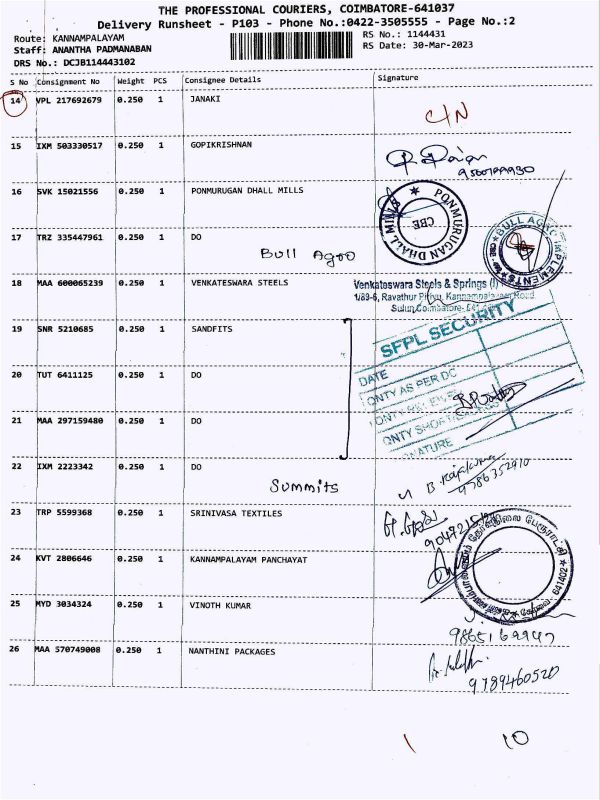 THE PROFESSIONAL COURIERS, COIMBATORE-641037
Delivery Runsheet - P103 - Phone No.:0422-3505555 - Page No.:2
Route: KANNAMPALAYAM
RS No.: 1144431
Staff: ANANTHA PADMANABAN
RS Date: 30-Mar-2023
DRS No.: DCJB114443102
S No Consignment No Weight PCS Consignee Details Signature
14 VPL 217692679 0.250 1 JANAKI
C/N
15 IXM 503330517 0.250 1 GOPIKRISHNAN
16 SVK 15021556 0.250 1 PONMURUGAN DHALL MILLS
PONMURUGAN DHALL MILLS
CBE
17 TRZ 335447961 0.250 1 DO
Bull Agro
BULL AGRO IMPLEMENTS
18 MAA 600065239 0.250 1 VENKATESWARA STEELS
Venkateswara Steels & Springs (I)
Ravathur Pirivu, Kannampalayam Road
Sulur, Coimbatore-
19 SNR 5210685 0.250 1 SANDFITS
SFPL SECURITY
20 TUT 6411125 0.250 1 DO
DATE
QNTY AS PER DC
21 MAA 297159480 0.250 1 DO
22 IXM 2223342 0.250 1 DO
Summits
B. Rajkumar
9786352910
23 TRP 5599368 0.250 1 SRINIVASA TEXTILES
24 KVT 2806646 0.250 1 KANNAMPALAYAM PANCHAYAT
641402
25 MYD 3034324 0.250 1 VINOTH KUMAR
26 MAA 570749008 0.250 1 NANTHINI PACKAGES
9789460520
1 10